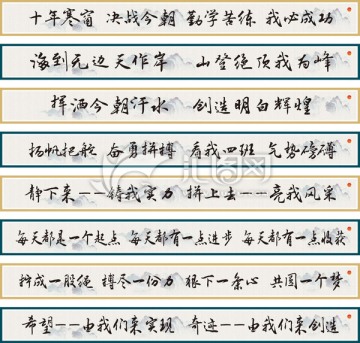 十年寒窗 决战今朝 勤学苦练 我必成功
海到无边天作岸 山登绝顶我为峰
挥洒今朝汗水 创造明日辉煌
扬帆把舵 奋勇拼搏 看我四班 气势磅礴
静下来——铸我实力 拼上去——亮我风采
每天都是一个起点 每天都有一点进步 每天都有一点收获
拧成一股绳 搏尽一份力 狠下一条心 共圆一个梦
希望——由我们来实现 奇迹——由我们来创造